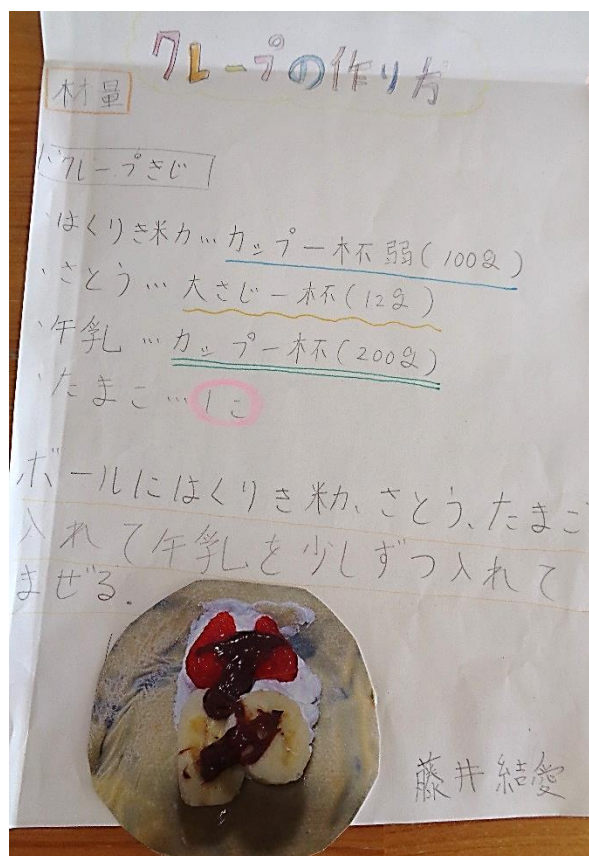 クレープの作り方
材量
クレープきじ
・はくりき粉…カップ一杯弱(100g)
・さとう…大さじ一杯(12g)
・牛乳…カップ一杯(200g)
・たまご…1こ
ボールにはくりき粉、さとう、たまご
入れて牛乳を少しずつ入れて
まぜる.
藤井結愛